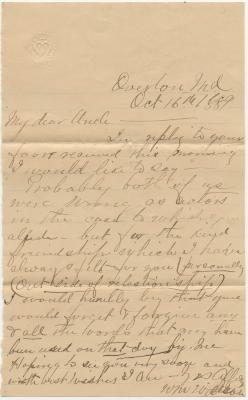 Overton Md
Oct 16th 1889
My dear Uncle —
In reply to your
favor received this morning
I would like to say —
Probably both of us
were wrong as actors
in the case to which you
allude — but for the kind
friendship which I have
always felt for you (personally)
(Outside of relationship)
I would humbly beg that you
would forget & forgive any
& all the words that may have
been used on that day by me
Hoping to see you very soon and
with best wishes I am —